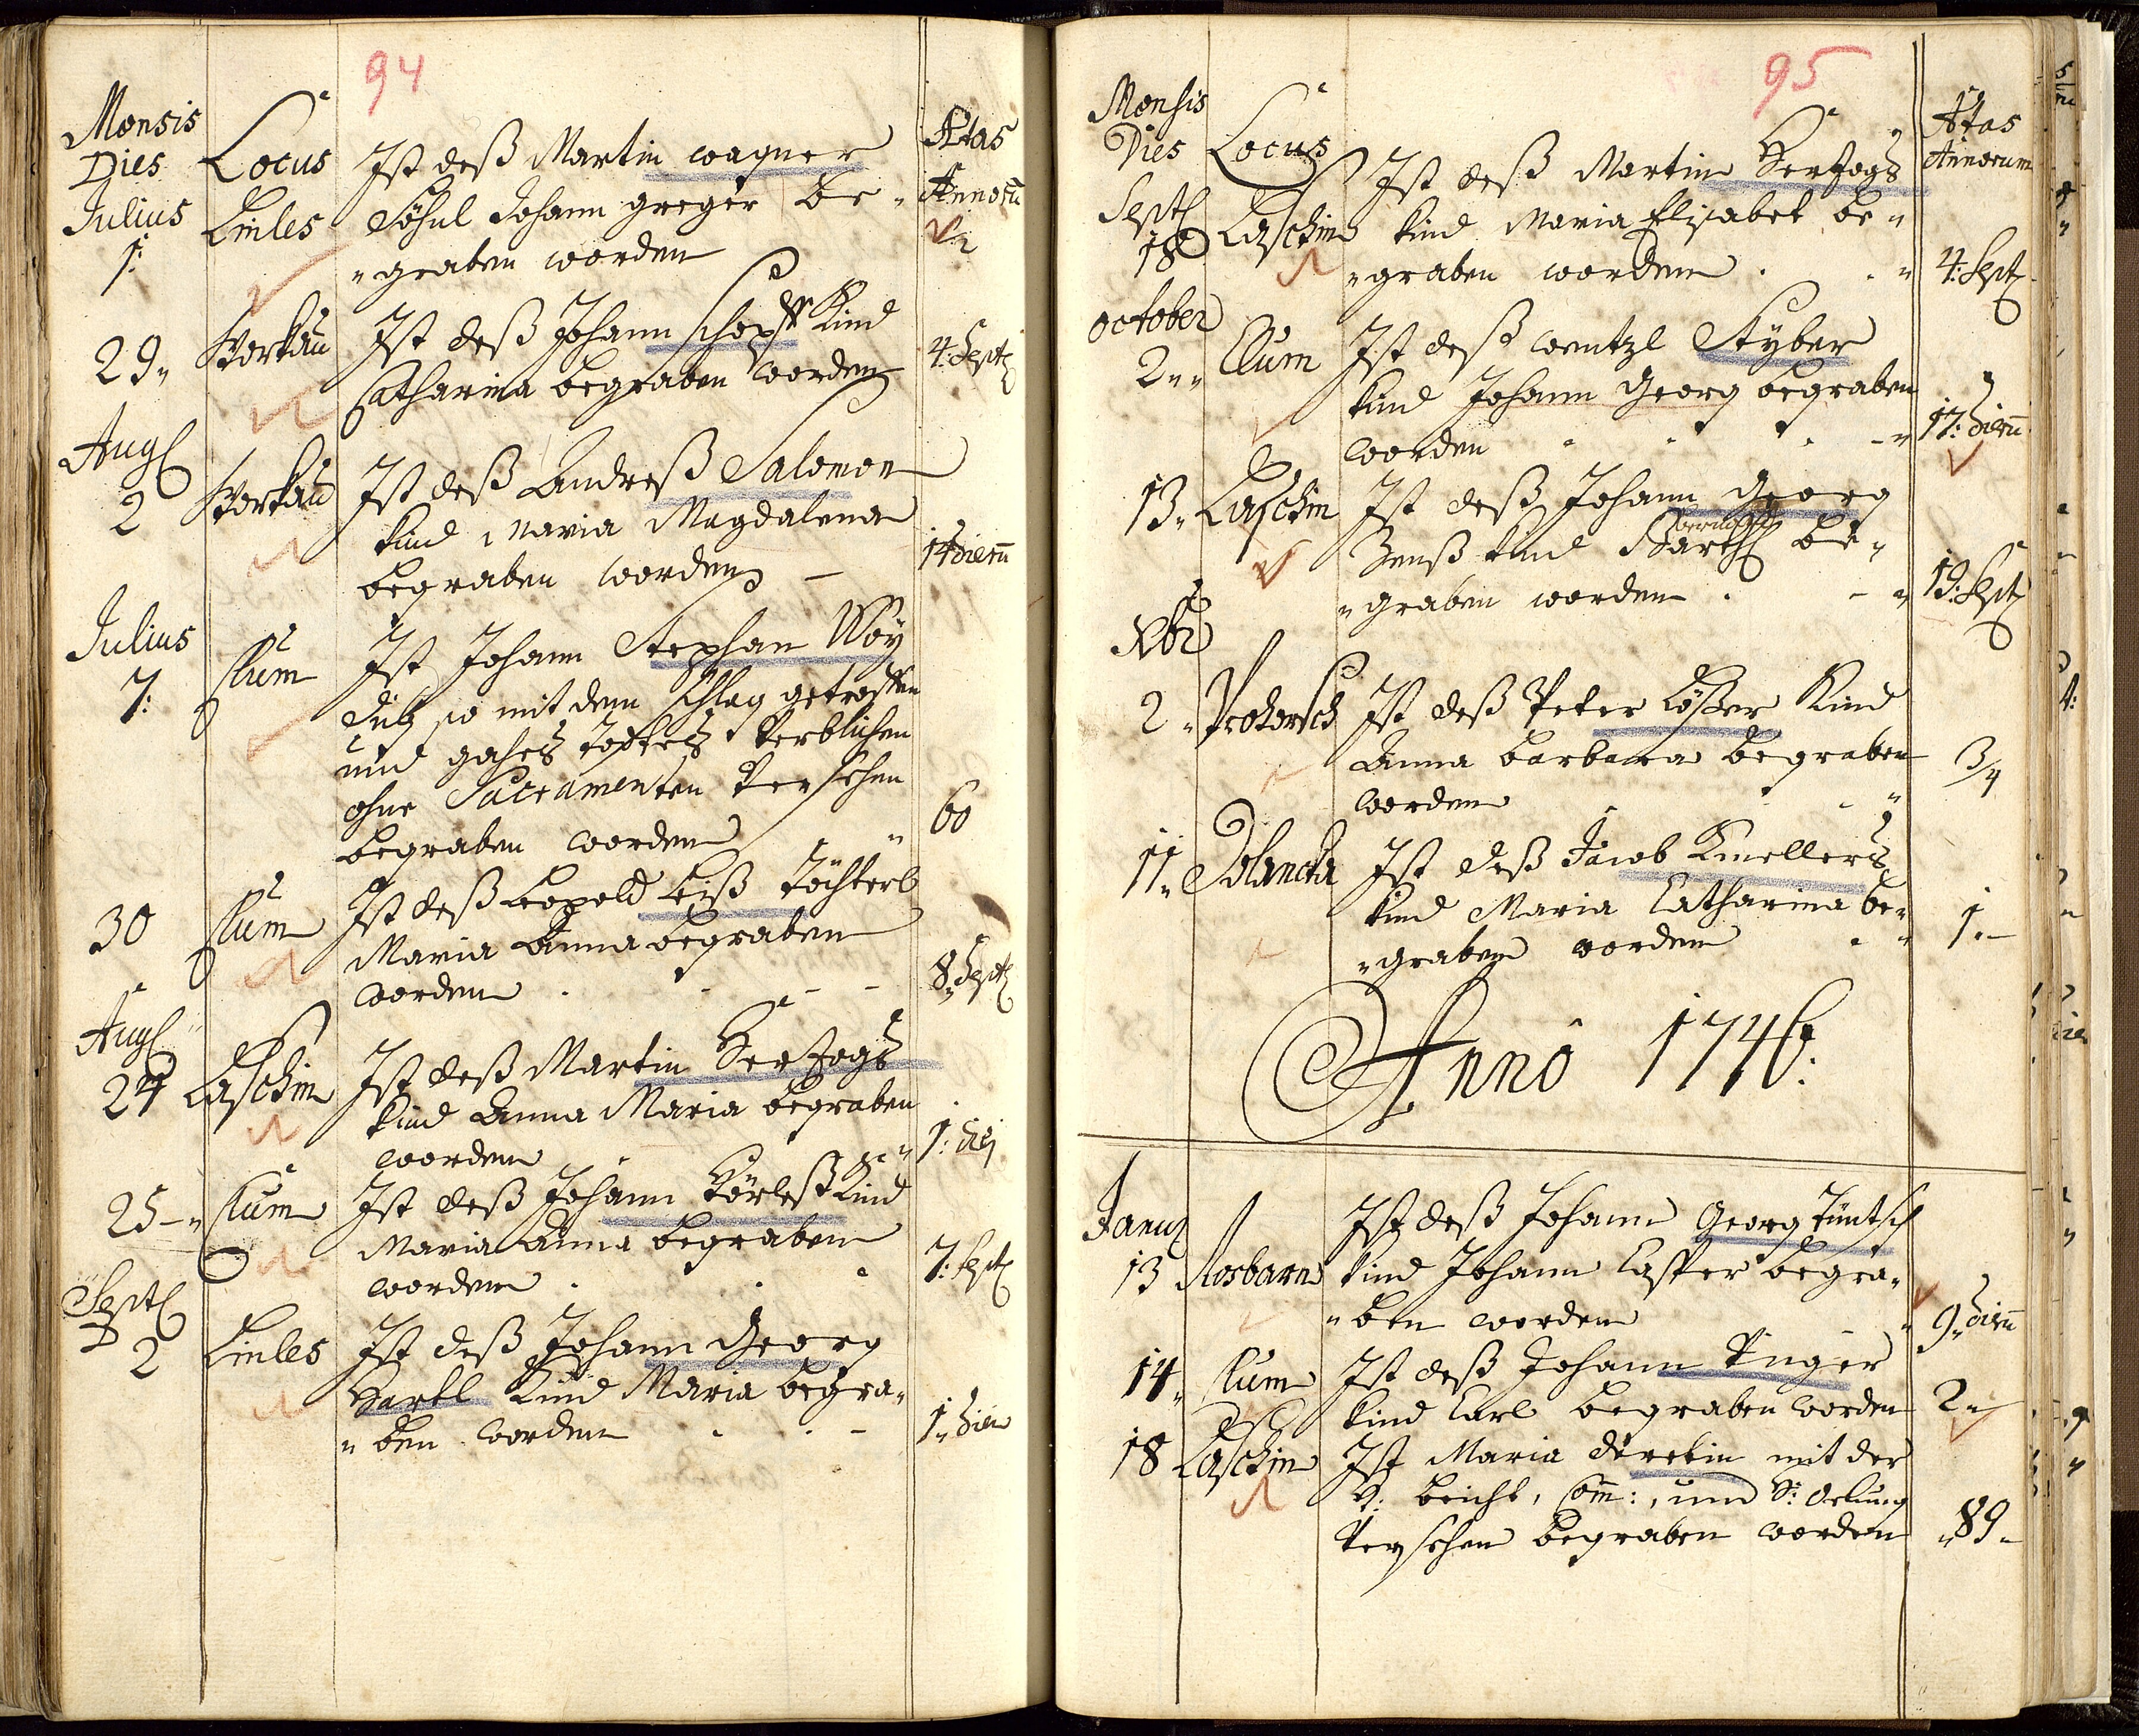 94
Mensis
Dies
Locus
Ætas
Annorū
Julius
1:
Linles
Ist deß Martin wagner
Söhnl Johann greger be-
graben worden
2
29
Workau
Ist deß Johann Kind
Catharina begraben worden
4: Sept
Aug
2
Workau
Ist deß Andreß Salomon
kind Maria Magdalena
begraben worden
14 dierū
Julius
7:
Clum
Ist Johann Stephan
so mit dem schlag getroffen
und gahes todtes verblichen
ohne Sacramenten versehen
begraben worden
60
30
Clum
Ist deß Leopold Liß töchterl
Maria Anna begraben
worden
8 Sept
Aug
24
Laschin
Ist deß Martin Hertzogs
kind Anna Maria begraben
worden
1:
25
Clum
Ist deß Johann Kind
Maria Anna begraben
worden
7: Sept
Sept
2
Linles
Ist deß Johann Georg
Hartl Kind Maria begra-
ben worden
1 Diei
95
Mensis
Dies
Locus
Ætas
Annorum
Sept
18
Laschin
Ist deß Martin Hertzogs
kind Maria Elisabet be-
graben worden
4: Sept
October
2
Clum
Ist deß wentzl Styber
kind Johann Georg begraben
worden
17: dierū
13
Laschin
Ist deß Johann Georg
kind be-
graben worden
19: Sept
Xbr
2
Prohorsch
Ist deß Peter Lößer Kind
Anna barbara begraben
worden
3/4
11
Polancka
Ist deß Jacob Knellers
kind Maria Catharina be-
graben worden
1
Anno 1746:
Janu
13
Rosbarn
Ist deß Johann Georg
kind Johann Casper begra-
ben worden
9 dierū
14
Clum
Ist deß Johann Unger
kind Carl begraben worden
2
18
Laschin
Ist Maria mit der
H: beicht, Com:, und H: Oelung
versehen begraben worden
89